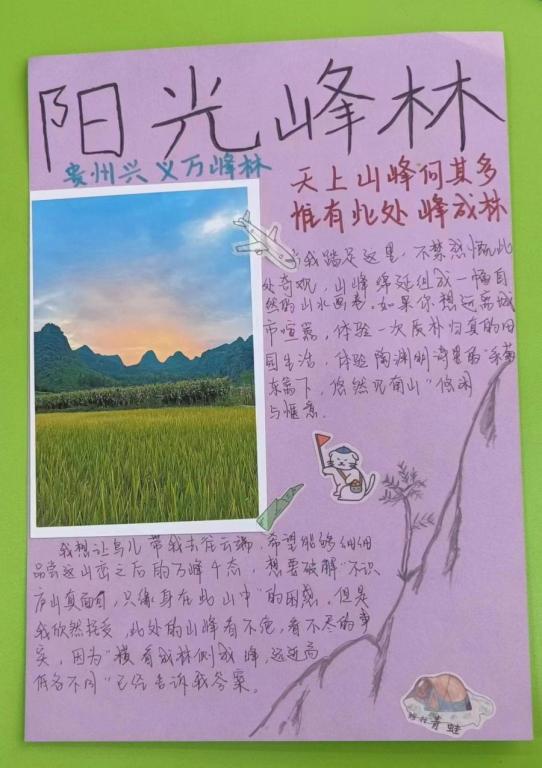 阳光峰林
贵州兴义万峰林
天上山峰何其多
惟有此处峰成林
当我踏足这里，不禁感慨此
处奇观，山峰绵延组成一幅自
然的山水画卷。如果你想远离城
市喧嚣，体验一次反朴归真的田
园生活，体验陶渊明诗里的“采菊
东篱下，悠然见南山”悠闲
与惬意。
我想让鸟儿带我去往云端，希望能够细细
品尝这山峦之后的万峰千态，想要破解“不识
庐山真面目，只缘身在此山中”的困惑，但是
我欣然接受，此处的山峰看不完，看不尽的事
实，因为“横看成林侧成峰，远近高
低各不同”已经告诉我答案。
青蛙